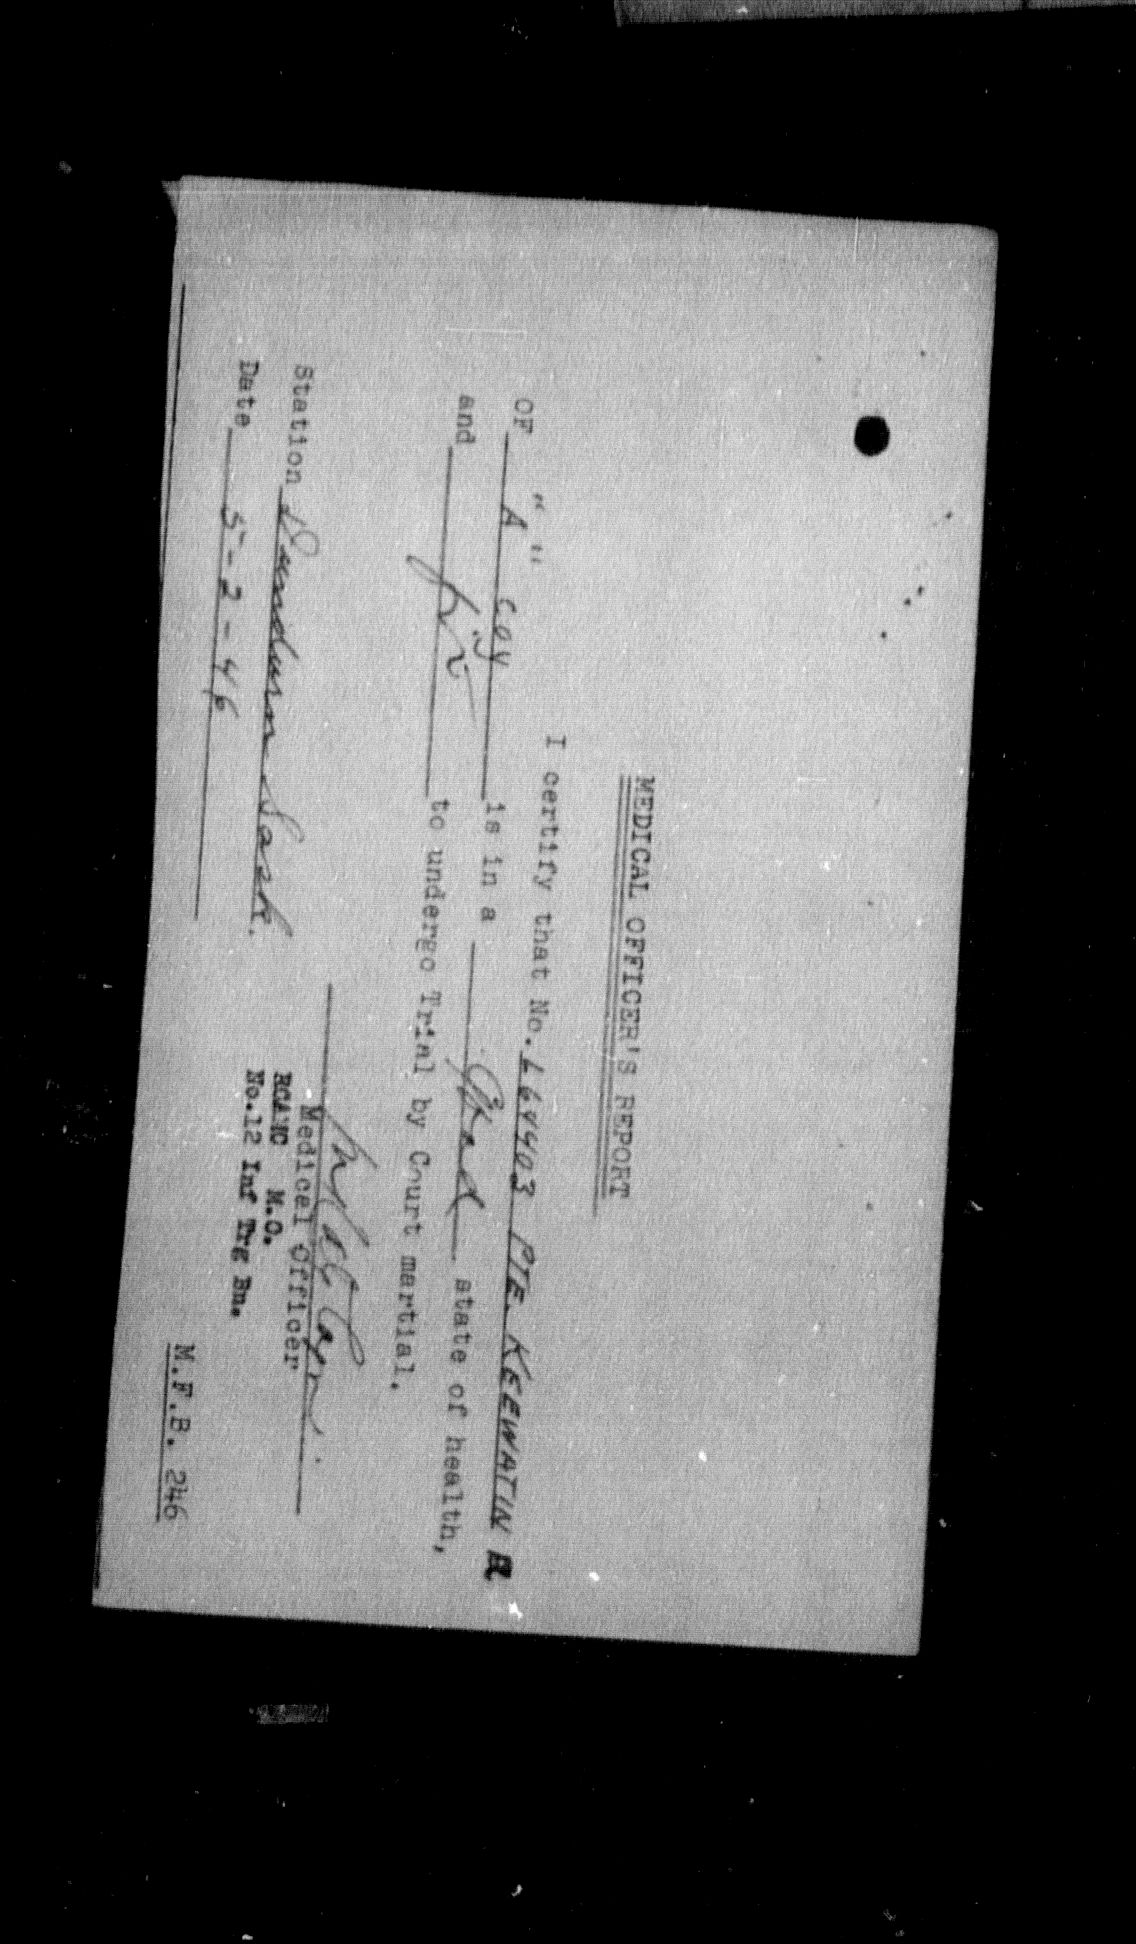 MEDICAL OFFICER'S REPORT
I certify that No. L64403 PTE. KEEWATIN R
OF "A" Coy is in a Good state of health,
and fit to undergo Trial by Court martial.
Medical Officer
Station Dundurn Sask.
RCAMC M.O.
Date 5-2-46
No.12 Inf Trg Bn.
M.F.B. 246